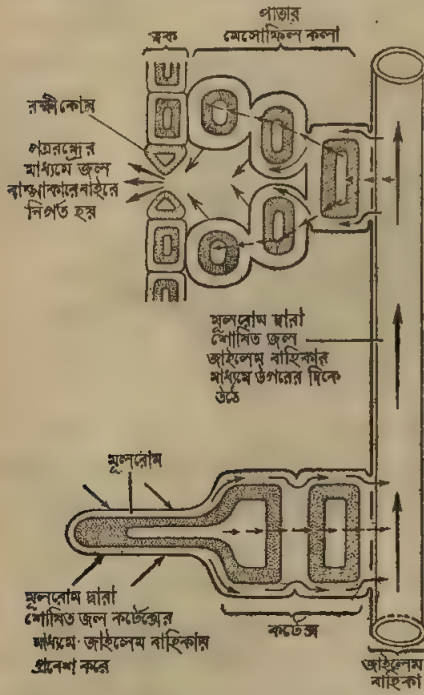 পাতার
ত্বক মেসোফিল কলা
রক্ষীকোষ
পত্ররন্ধ্রের
মাধ্যমে জল
বাষ্পাকারে বাইরে
নির্গত হয়
মূলরোম দ্বারা
শোষিত জল
জাইলেম বাহিকার
মাধ্যমে উপরের দিকে
উঠে
মূলরোম
মূলরোম দ্বারা
শোষিত জল কর্টেক্সের
মাধ্যমে জাইলেম বাহিকায়
প্রবেশ করে
কর্টেক্স
জাইলেম
বাহিকা